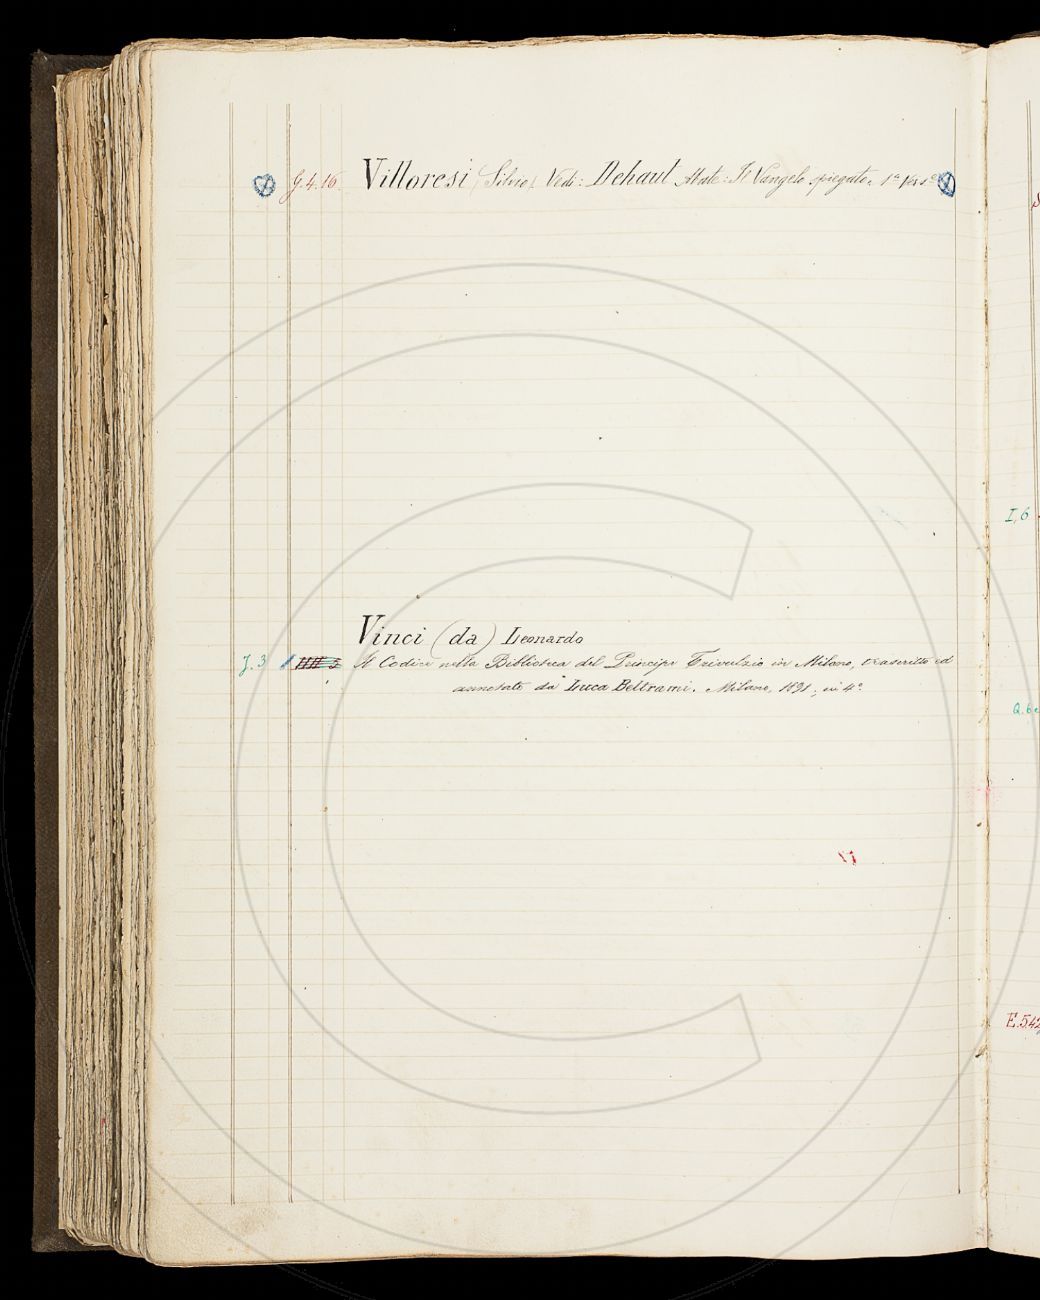 G.4.16. Villoresi (Silvio). Vedi: Dehaut Abate: Il Vangelo spiegato. 1ª Vers.e
Vinci (da) Leonardo
J. 3 Il Codice nella Biblioteca del Principe Trivulzio in Milano, trascritto ed
annotato da Luca Beltrami. Milano, 1891, in 4º.
VI
I,6
E.542